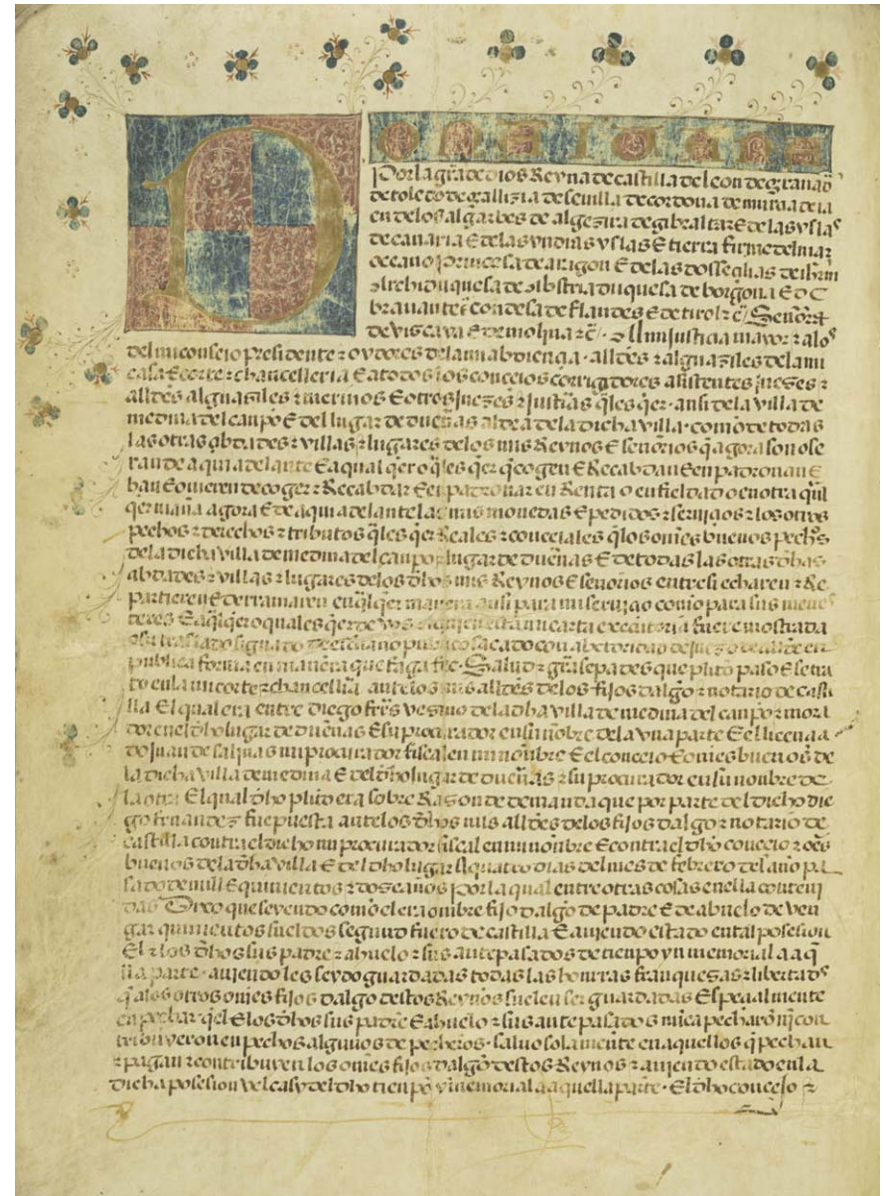 DONA IUANA
por la gr̃a de dios Reyna de castilla de leon de granad
de toledo de gallizia de seuilla de cordoua de murcia de ia
en de los algarbes de algezira de gibraltar E de las yslas
de canaria E de las yndias yslas E tierra firme del mar
oceano princesa de aragon E de las dos seçilias de ihrlm
archiduquesa de abstria duquesa de borgoña E de
brauante r̃c condesa de flandes E de tirol r̃c Señora
de viscaya E de molina r̃c. Al mi justicia mayor z a los
del mi conseio presidente z oydores de la mi abdiençia. alldes z alguaziles de la mi
casa E corte z chancelleria E a todos los conceios corrigidores asistentes juezes z
alldes alguaziles z merinos E otros juezes z justiçias q̃les q̃er. ansi de la villa de
medina del canpo E del lugar de dueñas aldea de la dicha villa. como de todas
las otras çbdades z villas z lugares de los mis Reynos E señorios q̃ agora son o se
ran de aqui adelante E a qual q̃er o q̃les q̃er q̃ cogen E Recabdan E enpadronan E
han E ouieren de coger z Recabdar E enpadronar en Renta o en fieldad o en otra q̃l
q̃er maña agora E de aqui adelante las mis monedas E pedidos z seruiçios z los otros
pechos z derechos z tributos q̃les q̃er Reales z conceiales q̃ los om̃es buenos pecho͠s
de la dicha villa de medina del canpo z lugar de dueñas E de todas las otras dhas
çibdades z villas z lugares de los dhos mis Reynos E señorios entre si echaren z Re
partieren E derramaren en q̃lq̃er manera ansi para mi seruiçio como para sus menes
teres E a q̃lq̃er o quales q̃er de vos a quien esta mi carta executoria fuere mostrada
o su traslado signado de escriuano publico sacado con abtoridad de juez o de allde en
publica forma en manera que faga fee. Salud z gr̃a sepades que plito paso E se tra
to en la mi corte z chancellia ante los mis alldes de los fijos dalgo z notario de casti
lla El qual era entre diego frrs vezino de la dha villa de medina del canpo z mora
dor en el dho lugar de dueñas E su procurador en su nombre de la vna parte E el liçençia
do juan de salinas mi procurador fiscal en mi nombre E el conceio E omes buenos de
la dicha villa de medina E del dho lugar de dueñas z su procurador en su nonbre de
la otra El qual dho plito era sobre Razon de demanda que por parte del dicho die
go fernandez fue puesta ante los dhos mis alldes de los fijos dalgo z notario de
castilla contra el dicho mi procurador fiscal en mi nombre E contra el dho conceio z oes
buenos de la dha villa E del dho lugar a quatro dias del mes de febrero del año pa
sado de mill E quinientos z dos años por la qual entre otras cosas en ella conteni
das Dixo que seyendo como el era ombre fijo dalgo de padre E de abuelo de ven
gar quinientos sueldos segund fuero de castilla E auiendo estado en tal posesion
El z los dhos sus padre z abuelo z sus antepasados de tienpo ynmemorial a aq̃
lla parte. auiendo les seydo guardadas todas las honrras franquezas z libertads
q̃ a los otros omes fijos dalgo destos Reynos suelen ser guardadas E speçialmente
en pechar q̃ el E los dhos sus padre E abuelo z sus ante pasados nũca pecharon ni con
tribuyeron en pechos algunos de pecheros. saluo solamente en aquellos q̃ pechan
z pagan z contribuyen los omes fijos dalgo destos Reynos z auiendo estado en la
dicha posesion vel casy del dho tienpo ynmemorial a aquella parte. El dho conceio z